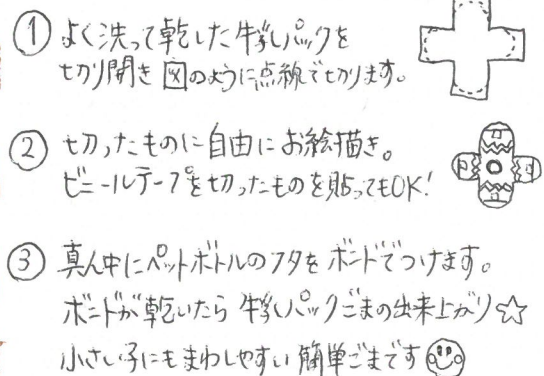 ① よく洗って乾した牛乳パックを
切り開き図のように点線で切ります。
② 切ったものに自由にお絵描き。
ビニールテープを切ったものを貼ってもOK!
③ 真ん中にペットボトルのフタをボンドでつけます。
ボンドが乾いたら牛乳パックごまの出来上がり☆
小さい子にもまわしやすい簡単ごまです